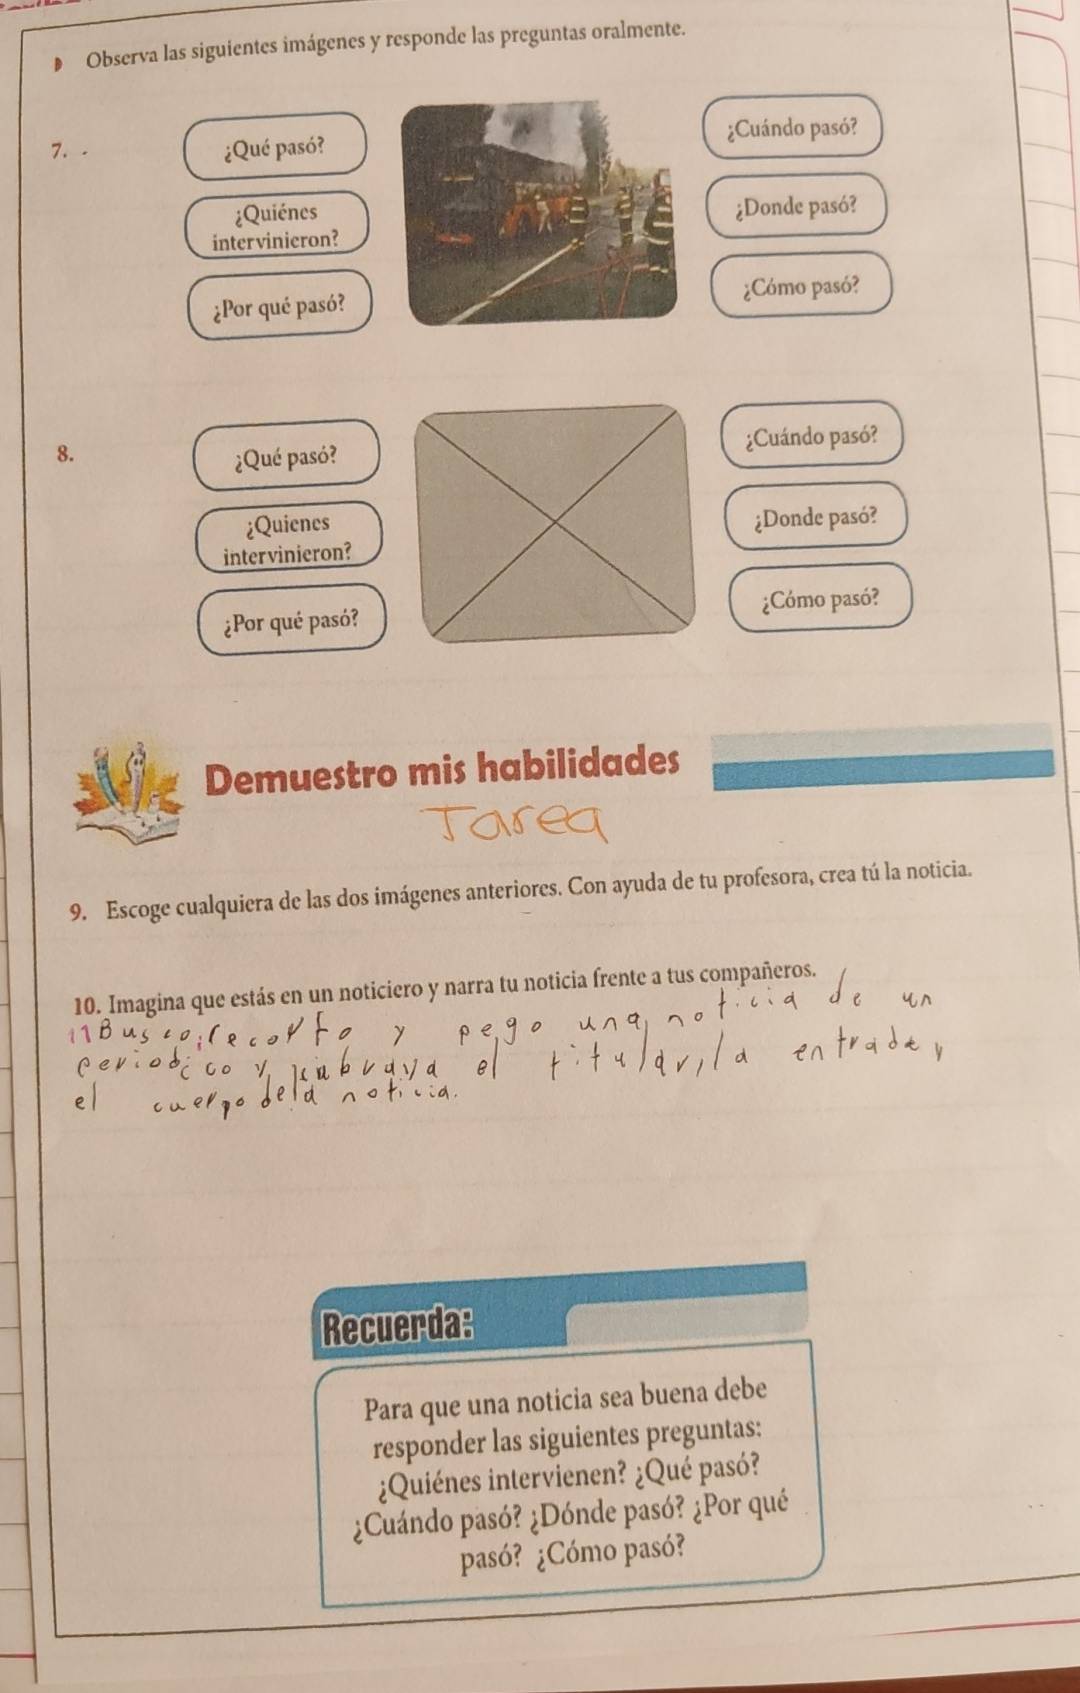 Observa las siguientes imágenes y responde las preguntas oralmente.
7.
¿Qué pasó?
¿Quiénes
intervinieron?
¿Por qué pasó?
¿Cuándo pasó?
¿Donde pasó?
¿Cómo pasó?
8.
¿Qué pasó?
¿Quienes
intervinieron?
¿Por qué pasó?
¿Cuándo pasó?
¿Donde pasó?
¿Cómo pasó?
Demuestro mis habilidades
Tarea
9. Escoge cualquiera de las dos imágenes anteriores. Con ayuda de tu profesora, crea tú la noticia.
10. Imagina que estás en un noticiero y narra tu noticia frente a tus compañeros.
11 Busco, recorto y pego una noticia de un
periodico y el titular, la entrada y
el cuerpo de la noticia.
Recuerda:
Para que una noticia sea buena debe
responder las siguientes preguntas:
¿Quiénes intervienen? ¿Qué pasó?
¿Cuándo pasó? ¿Dónde pasó? ¿Por qué
pasó? ¿Cómo pasó?